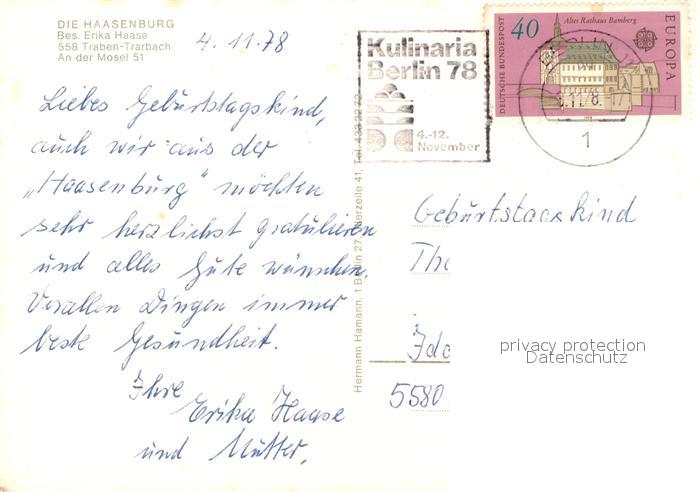 DIE HAASENBURG
Bes. Erika Haase
558 Traben-Trarbach
An der Mosel 51
4.11.78
Liebes Geburtstagskind,
auch wir aus der
"Haasenburg" möchten
sehr herzlichst gratulieren
und alles Gute wünschen.
Vorallen Dingen immer
beste Gesundheit.
Ihre
Erika Haase
und Mutter.
Hermann Hamann, 1 Berlin 27, Tel. 433 22 72
Kulinaria
Berlin 78
4.-12.
November
DEUTSCHE BUNDESPOST
40
Altes Rathaus Bamberg
EUROPA
1
Geburtstagskind
5580
privacy protection
Datenschutz